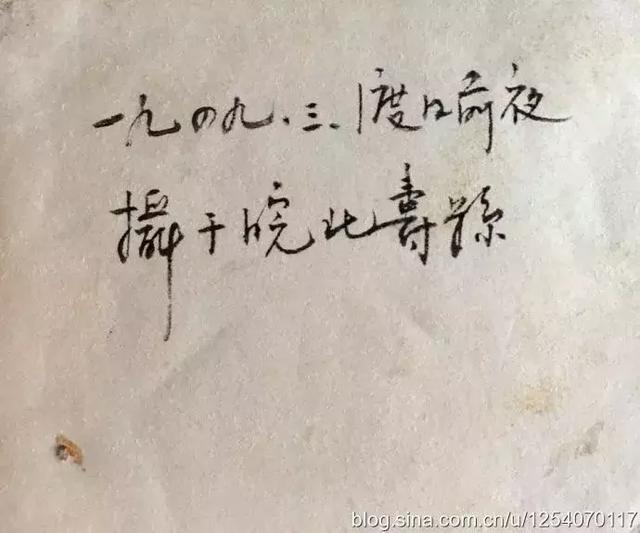 一九四九.三.渡江前夜
攝于皖北壽縣
blog.sina.com.cn/u/1254070117